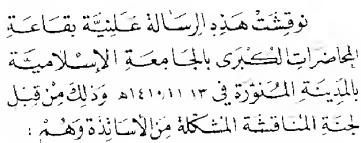 نوقِشَتْ هَذِهِ الرِسَالة عَلنيَّة بقَاعَة
المحَاضرَات الكبرى بالجَامعَة الإسلاميَّة
بالمَدينَة المُنَوّرَة في ١٤١٠،١١،١٣ه وَذلك مِنْ قِبَل
لجنَة المنَاقشَة المشكَّلة مِنَ الأسَاتذَة وَهُمْ :